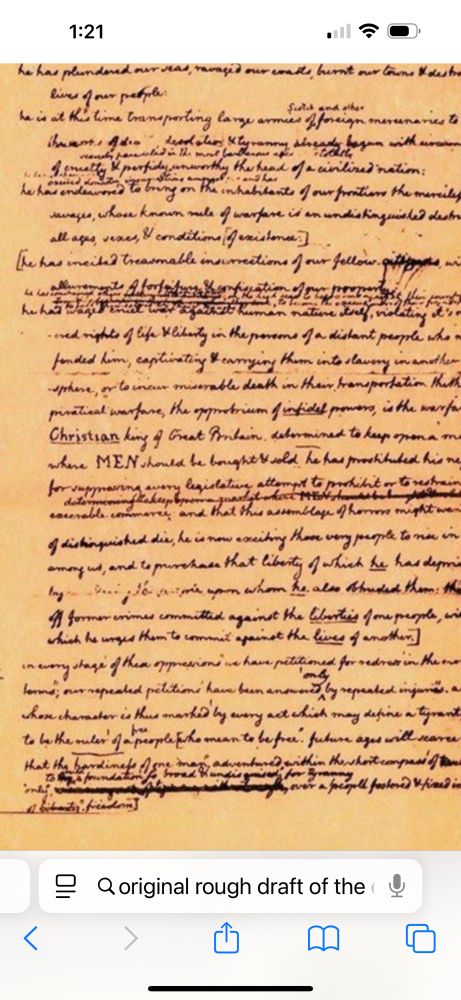 1:21
he has plundered our seas, ravaged our coasts, burnt our towns & destr
lives of our people:
Scotch and other
he is at this time transporting large armies of foreign mercenaries to
the works of dea desolation & tyranny already begun with circum
scarcely paralleled in the most barbarous ages totally
of cruelty & perfidy unworthy the head of a civilized nation:
excited domestic insurrections amongst and has
he has endeavored to bring on the inhabitants of our frontiers the merciles
savages, whose known rule of warfare is an undistinguished destru
all ages, sexes, & conditions [of existence:]
[he has incited treasonable insurrections of our fellow wi
allurements of forfeiture & confiscation of our property
he has waged cruel war against human nature itself, violating it's
-cred rights of life & liberty in the persons of a distant people who n
fended him, captivating & carrying them into slavery in another
-sphere, or to incur miserable death in their transportation thith
piratical warfare, the opprobrium of infidel powers, is the warfa
Christian king of Great Britain. determined to keep open a ma
where MEN should be bought & sold he has prostituted his ne
for suppressing every legislative attempt to prohibit or to restrain
determining to keep open a market where MEN should be
execrable commerce: and that this assemblage of horrors might wan
of distinguished die, he is now exciting those very people to rise in
among us, and to purchase that liberty of which he has depriv
by upon whom he also obtruded them: thu
off former crimes committed against the liberties of one people, wi
which he urges them to commit against the lives of another.]
in every stage of these oppressions we have petitioned for redress in the mo
only
terms; our repeated petitions have been answered by repeated injuries. a
whose character is thus marked by every act which may define a tyrant
free
to be the ruler of a people [who mean to be free. future ages will scarce
that the hardiness of one man, adventured within the short compass of
to a foundation so broad & undisguised, for tyranny
only, over a people fostered & fixed in
of liberty freedom]
original rough draft of the